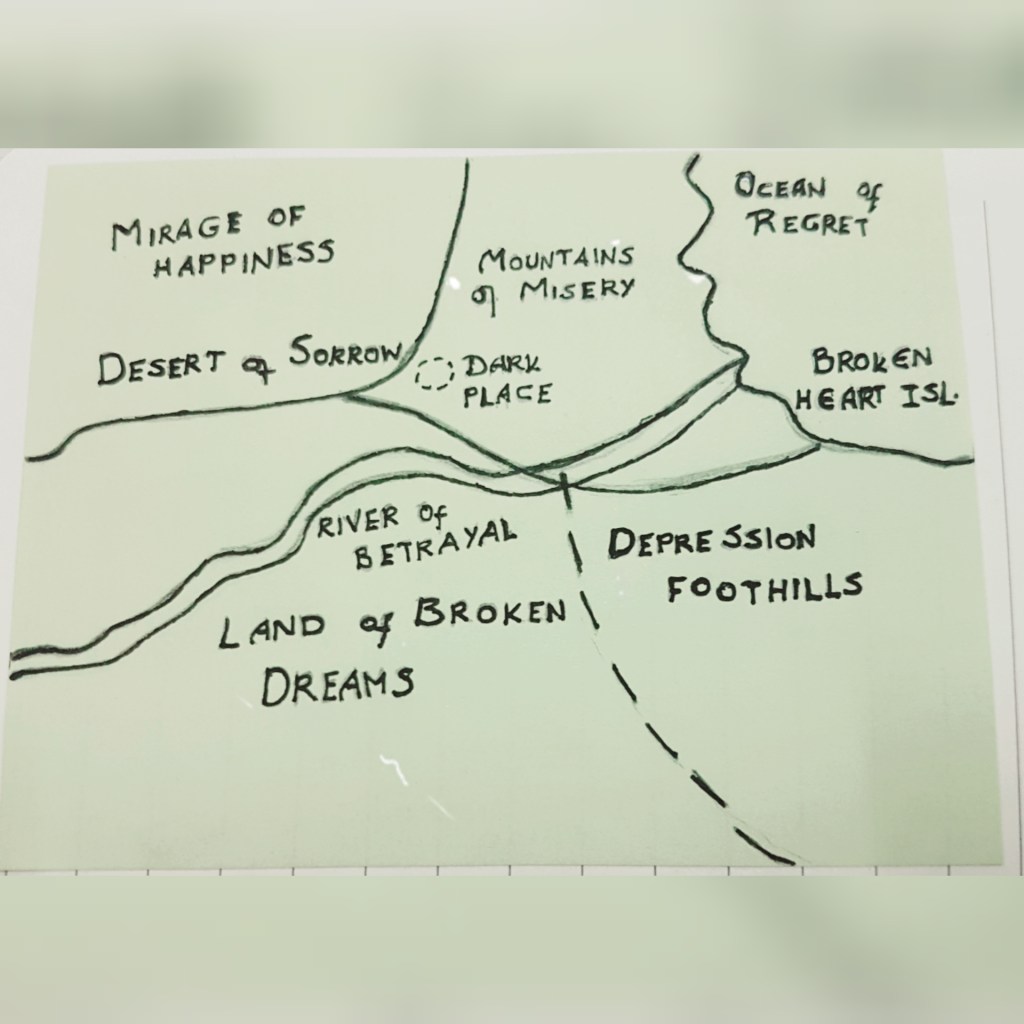 MIRAGE OF
HAPPINESS
OCEAN of
REGRET
MOUNTAINS
of MISERY
DESERT of SORROW
DARK
PLACE
BROKEN
HEART ISL.
RIVER of
BETRAYAL
DEPRESSION
FOOTHILLS
LAND of BROKEN
DREAMS